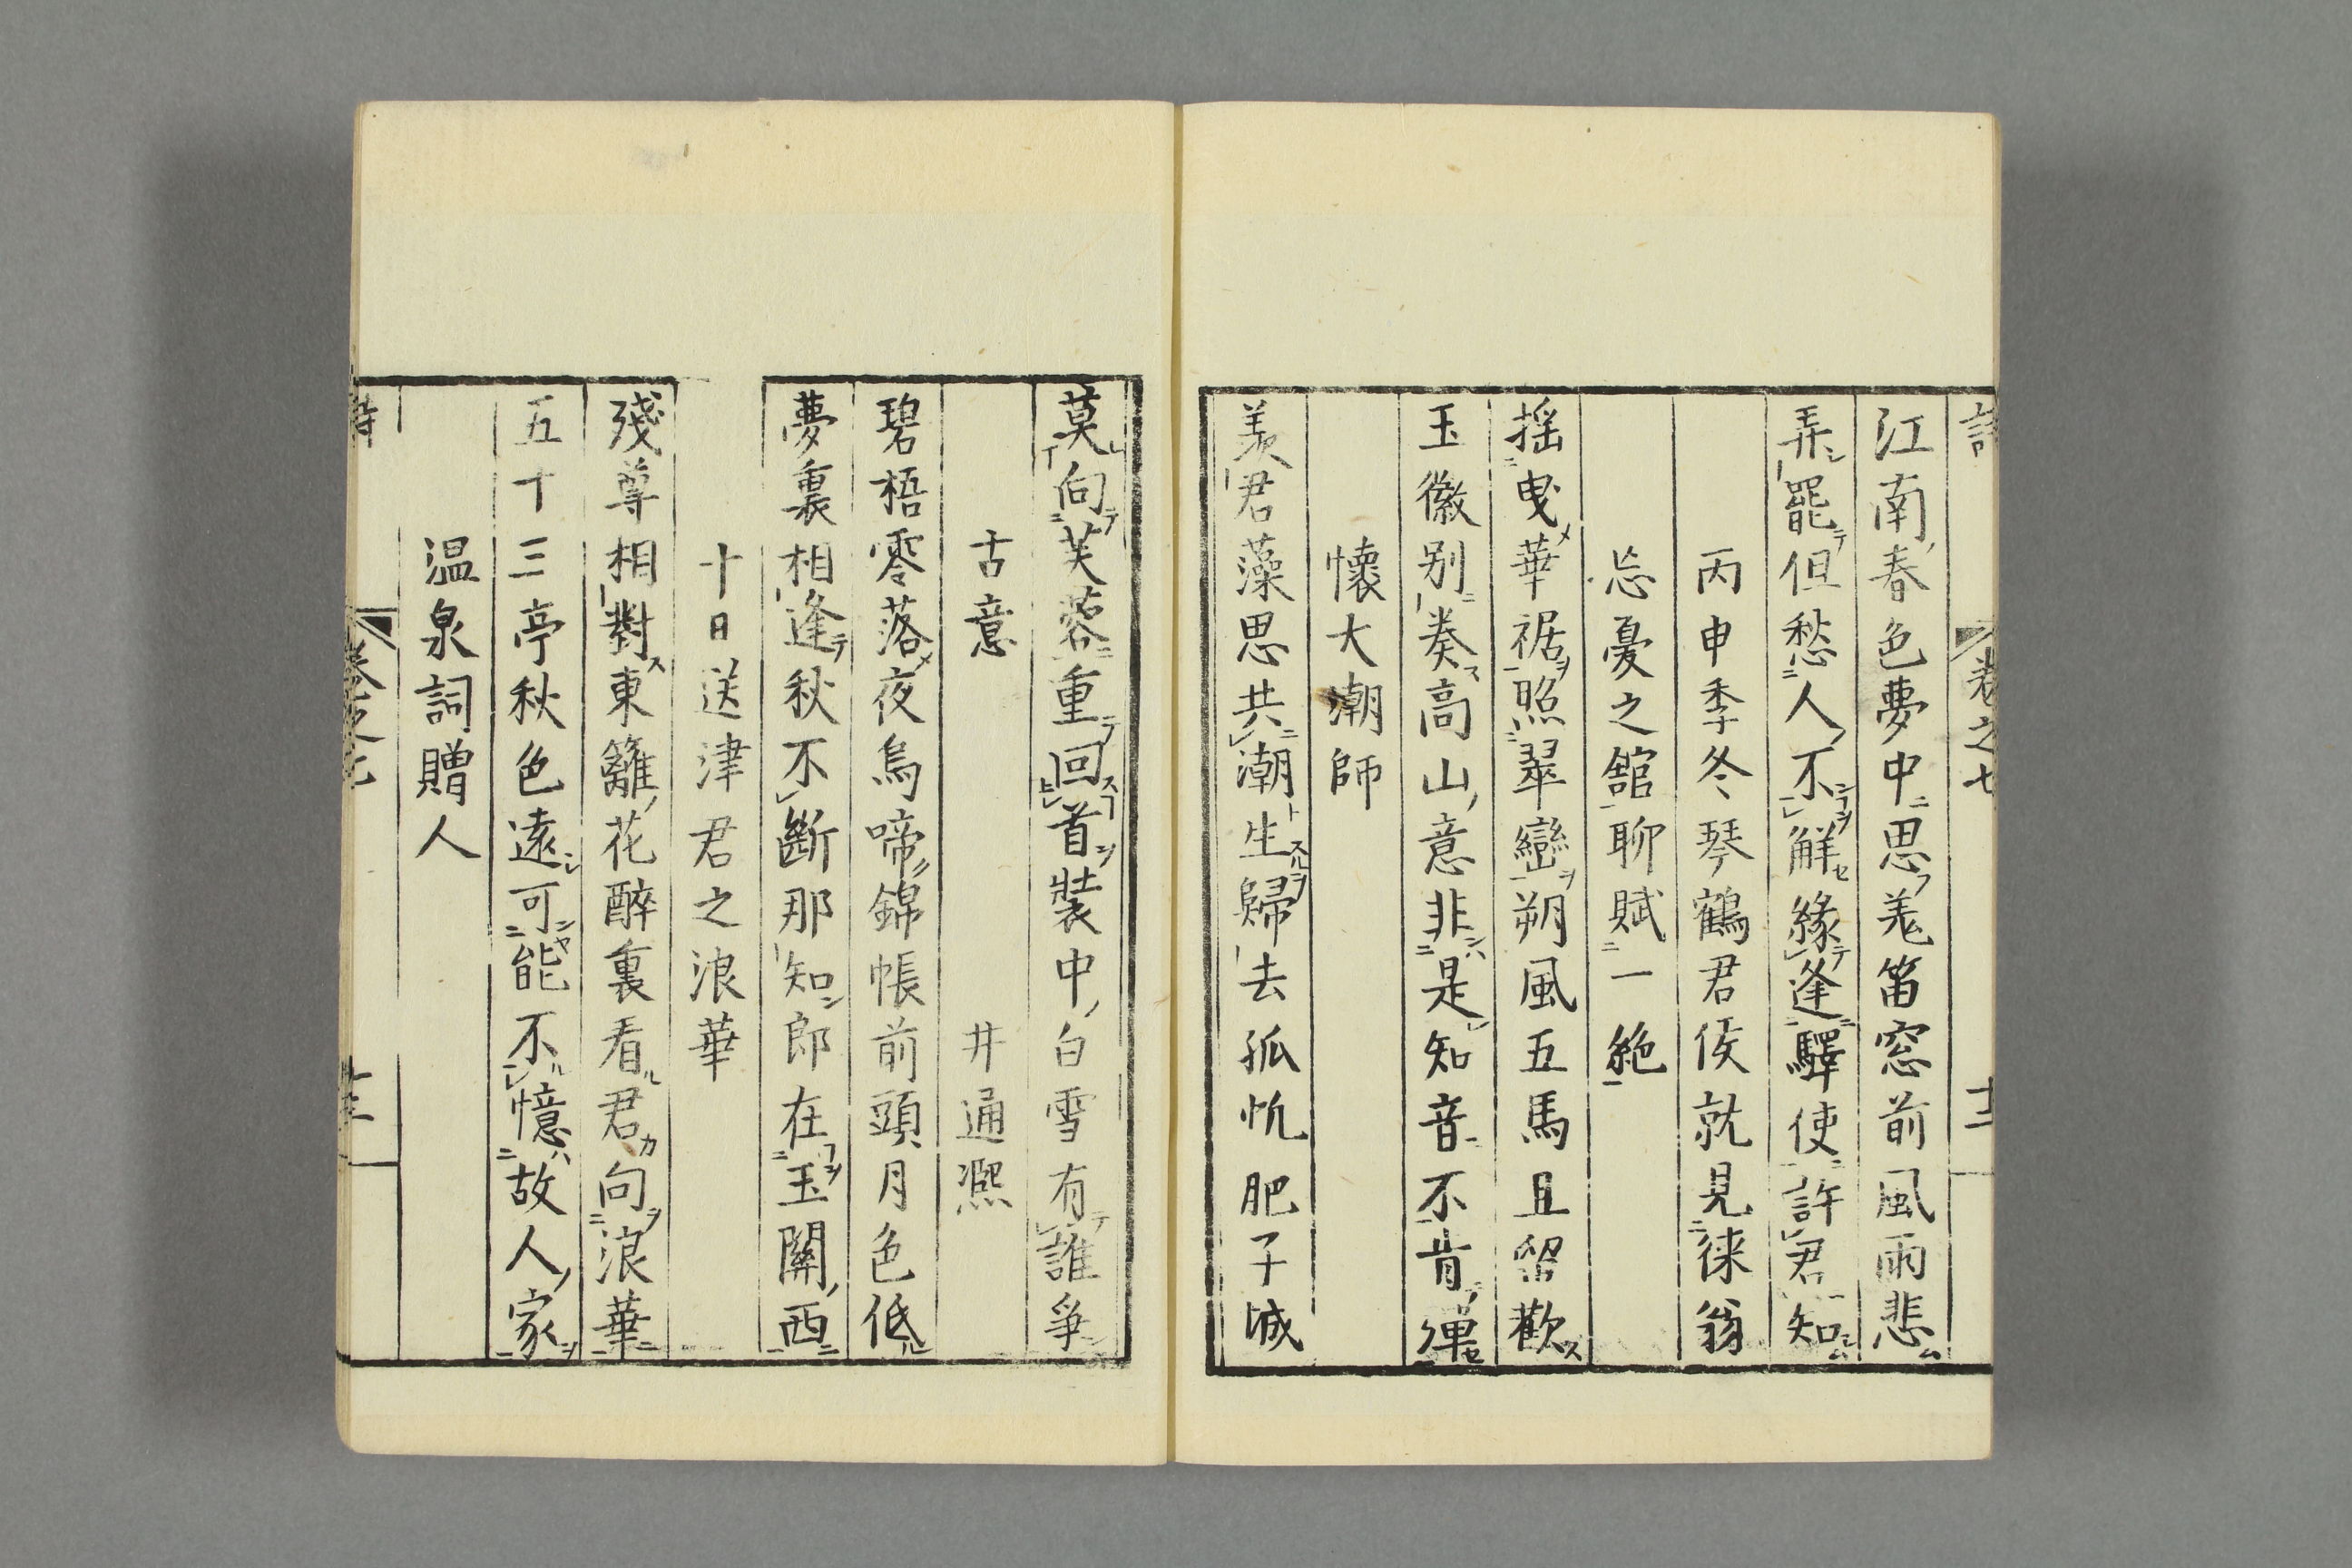 卷之七
江南春色夢中思羗笛窓前風雨悲
弄罷但愁人不解緣逢驛使許君知
丙申季冬琴鶴君侯就見徠翁
忘憂之舘聊賦一絶
揺曳華裾照翠巒朔風五馬且留歡
玉徽别奏高山意非是知音不肯彈
懷大潮師
羨君藻思共潮生歸去孤帆肥子城
莫向芙蓉重回首裝中白雪有誰爭
古意　井通熈
碧梧零落夜烏啼錦帳前頭月色低
夢裏相逢秋不斷那知郎在玉關西
十日送津君之浪華
殘尊相對東籬花醉裏看君向浪華
五十三亭秋色遠可能不憶故人家
温泉詞贈人